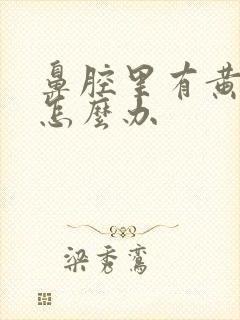 鼻腔里有黄
怎麼办
梁秀鸾